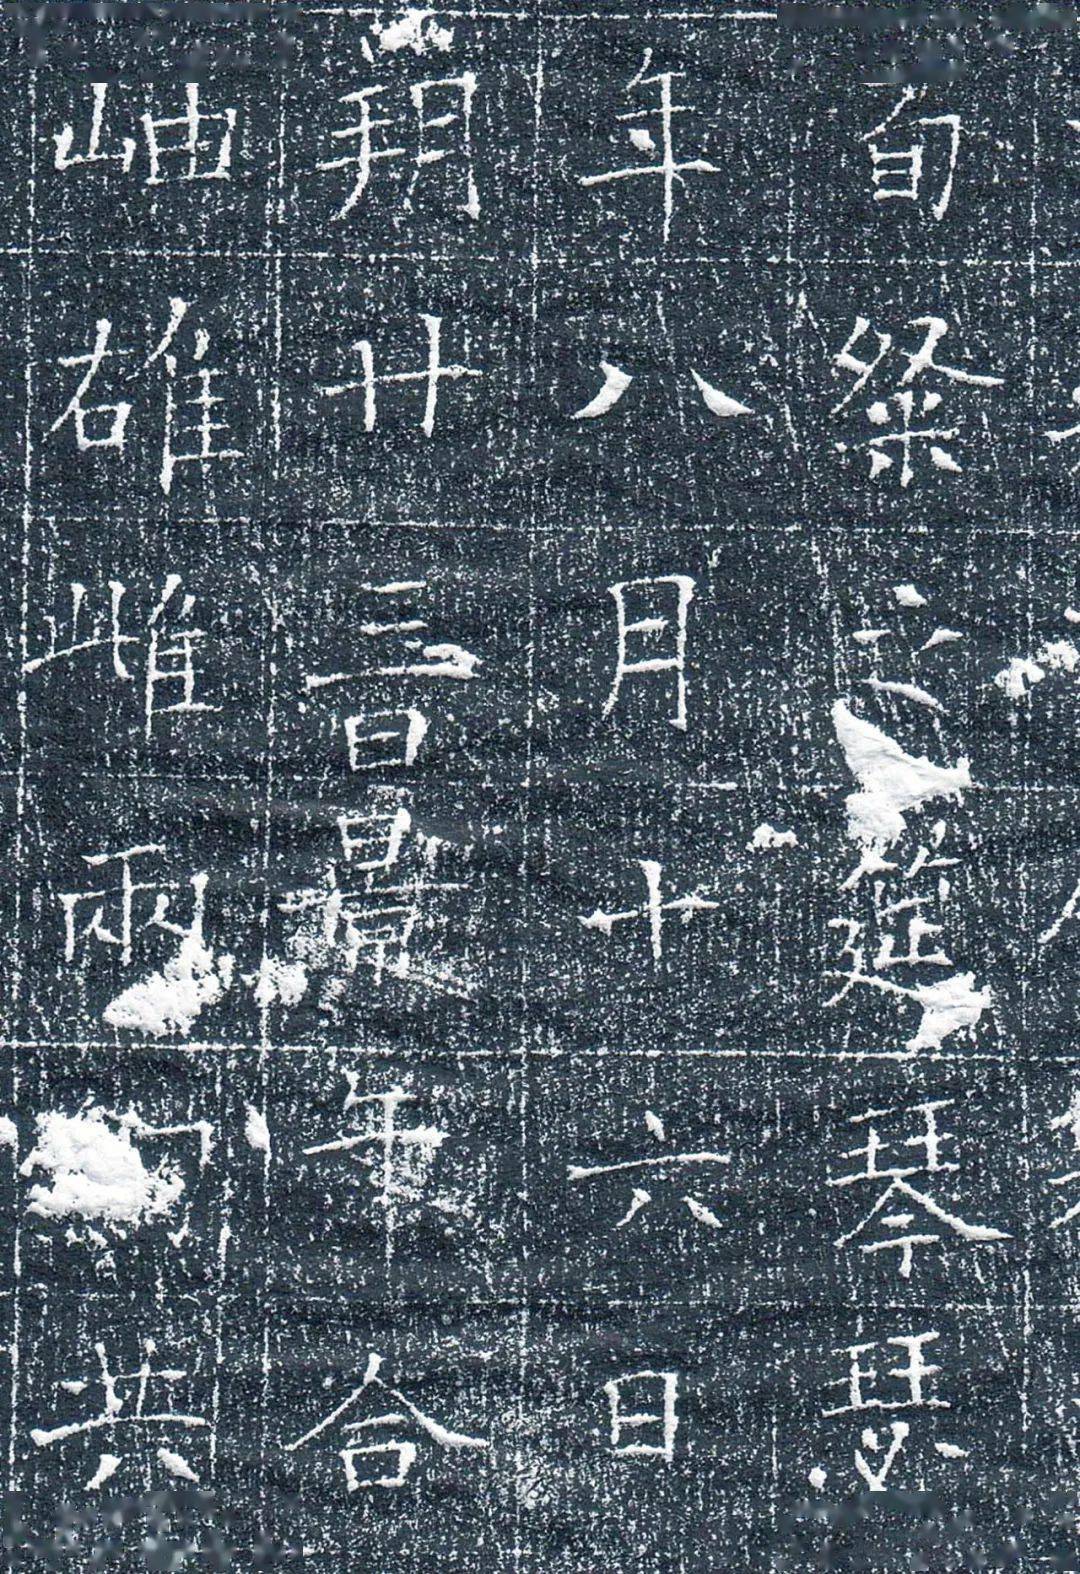 旬粲之筵琴瑟
年八月十六日
朔廿三日景午合
岫雄雌兩共